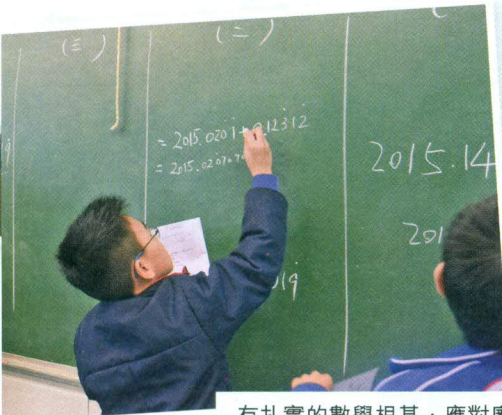 (三)
(二)
= 2015.020i + 0.12312
= 2015.020
2015.14
201
19
有扎實的數學根基,應對